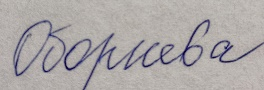 Оборнева